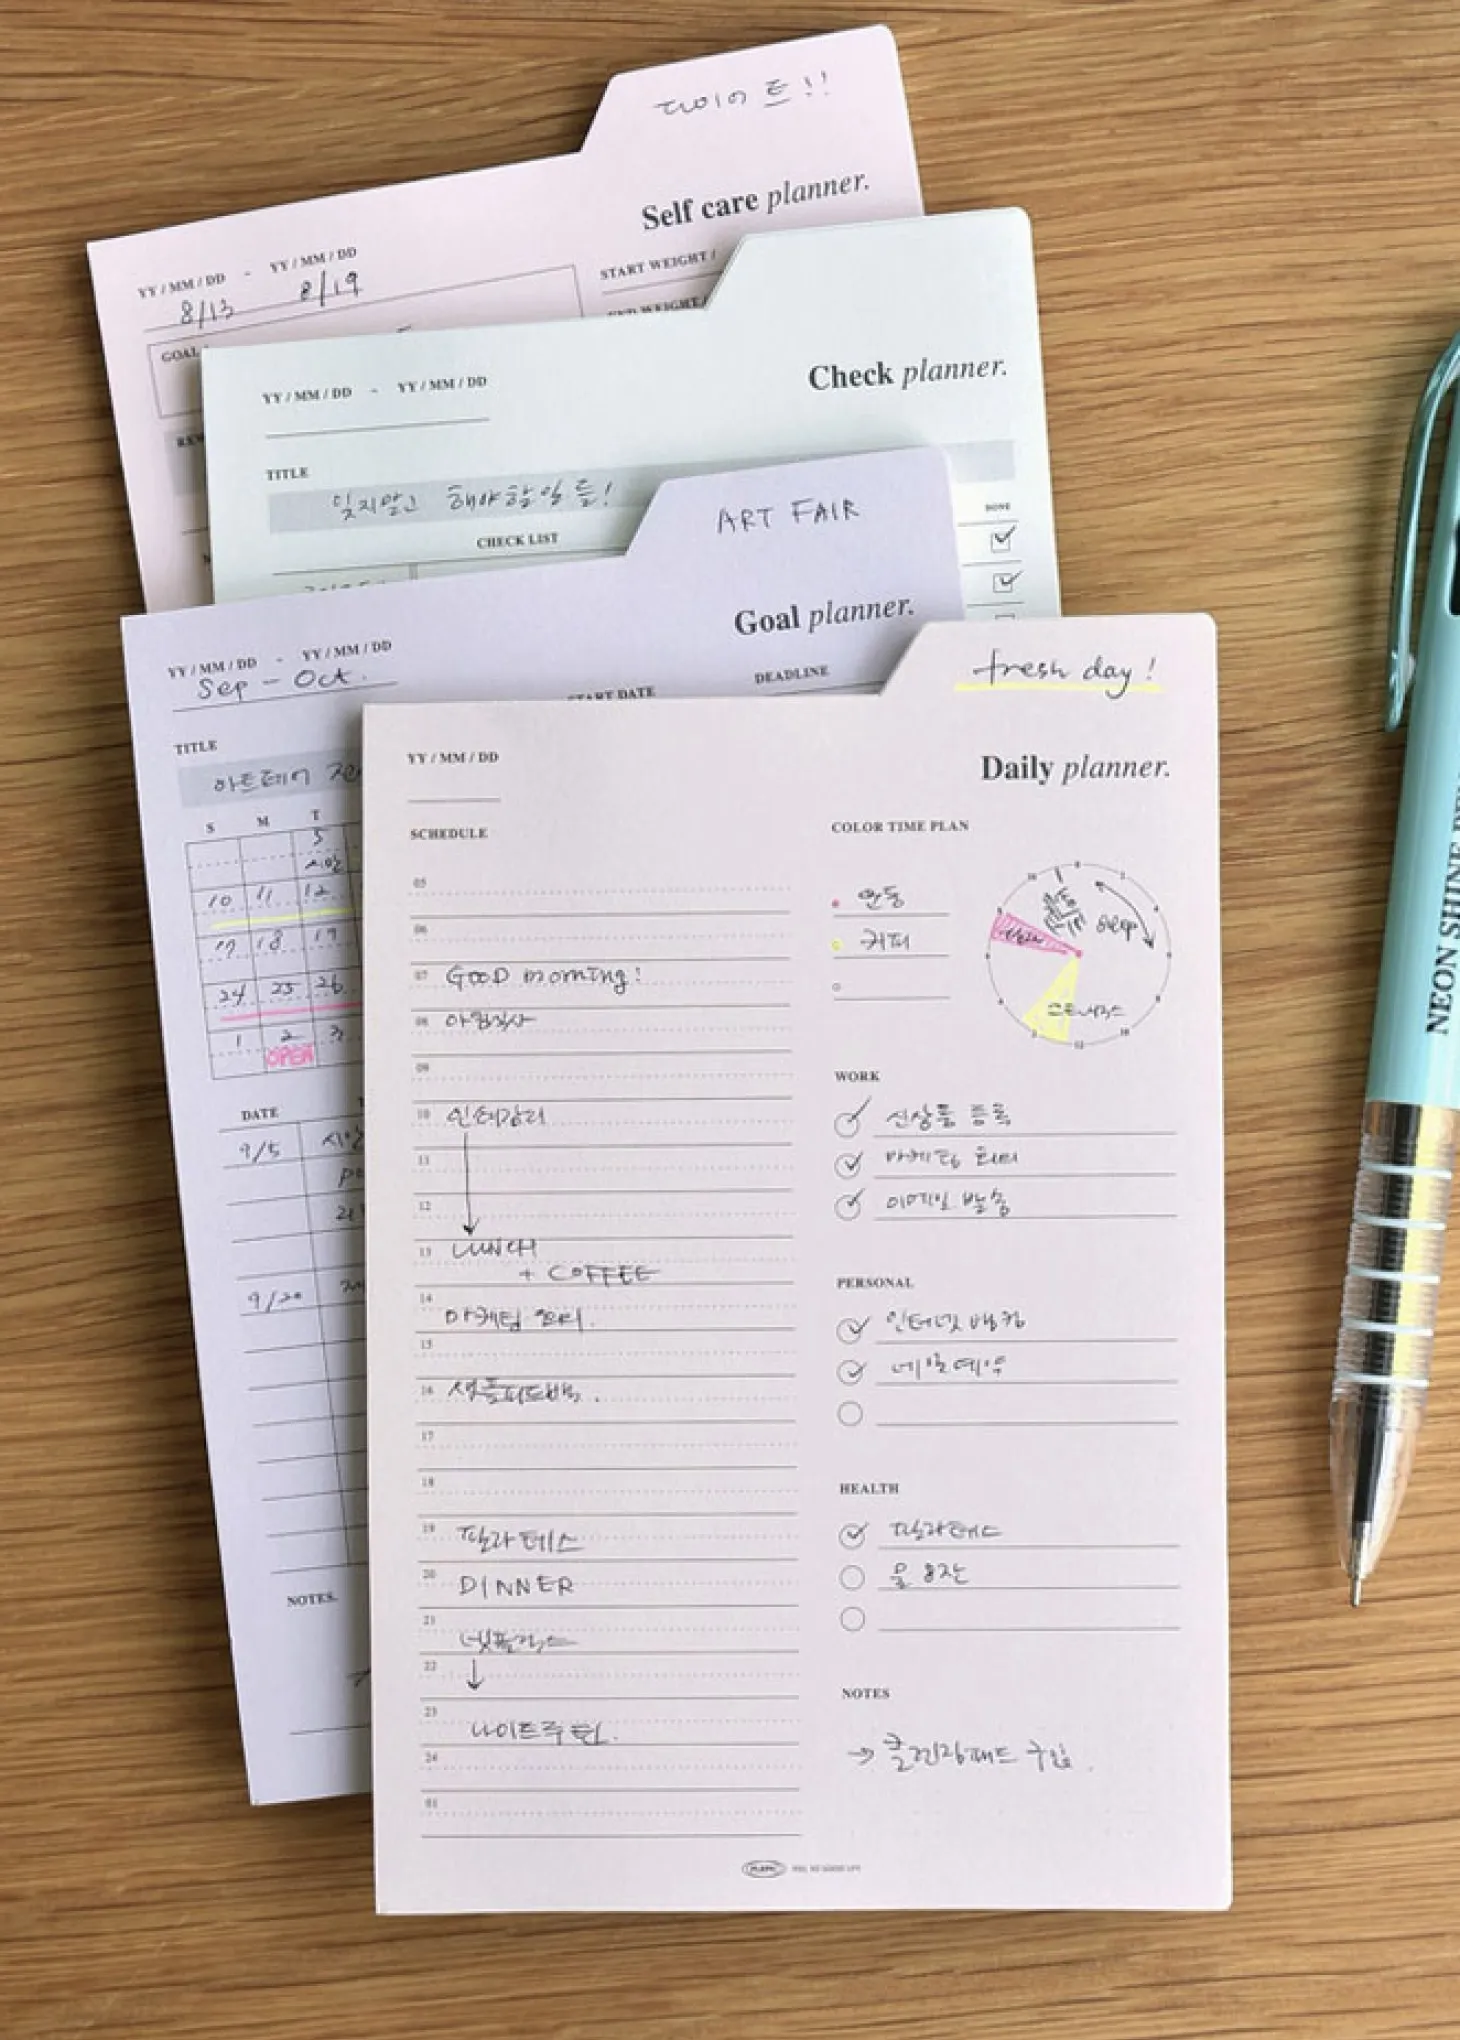 다이어트!!
Self care planner.
YY / MM / DD - YY / MM / DD
8/13 8/19
START WEIGHT /
END WEIGHT /
GOAL
Check planner.
YY / MM / DD - YY / MM / DD
TITLE
잊지말고 해야할일들!
CHECK LIST
DONE
ART FAIR
Goal planner.
YY / MM / DD - YY / MM / DD
Sep - Oct.
START DATE
DEADLINE
TITLE
아트페어
S M T
5
10 11 12
17 18 19
24 25 26
1 2 3
OPEN
DATE
9/5
9/20
NOTES.
fresh day!
Daily planner.
YY / MM / DD
SCHEDULE
05
06
07 GOOD morning!
08 아침식사
09
10 인테감리
11
12
13 LUNCH
+ COFFEE
14
마케팅 회의.
15
16 샘플피드백.
17
18
19 필라테스
20 DINNER
21
넷플릭스
22
23
나이트루틴.
24
01
COLOR TIME PLAN
운동
커피
sleep
WORK
신상품 등록
마케팅 회의
이메일 발송
PERSONAL
인터넷 뱅킹
네일예약
HEALTH
필라테스
물 8잔
NOTES
→ 클렌징패드 구입.
NEON SHINE PEN